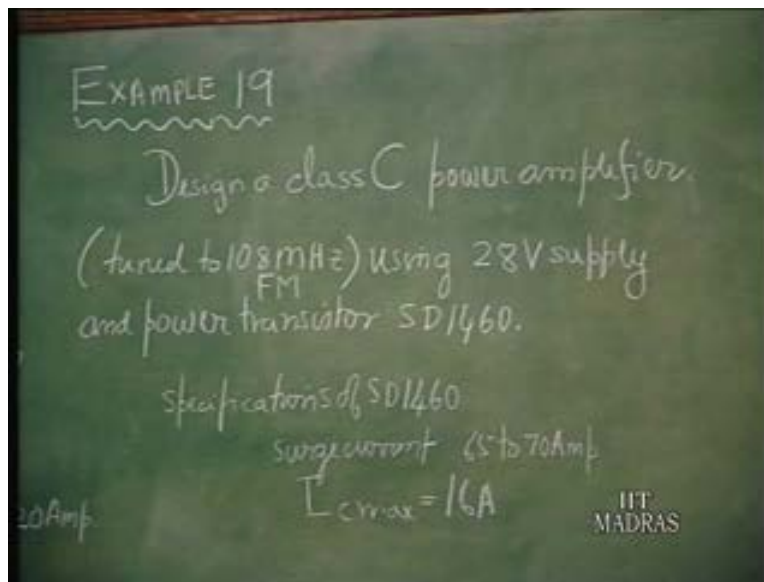 EXAMPLE 19
Design a class C power amplifier.
(tuned to 108mHz) using 28V supply
FM
and power transistor SD1460.
specifications of SD1460
surge current 65 to 70Amp
ICmax = 16A
20Amp.
IIT
MADRAS